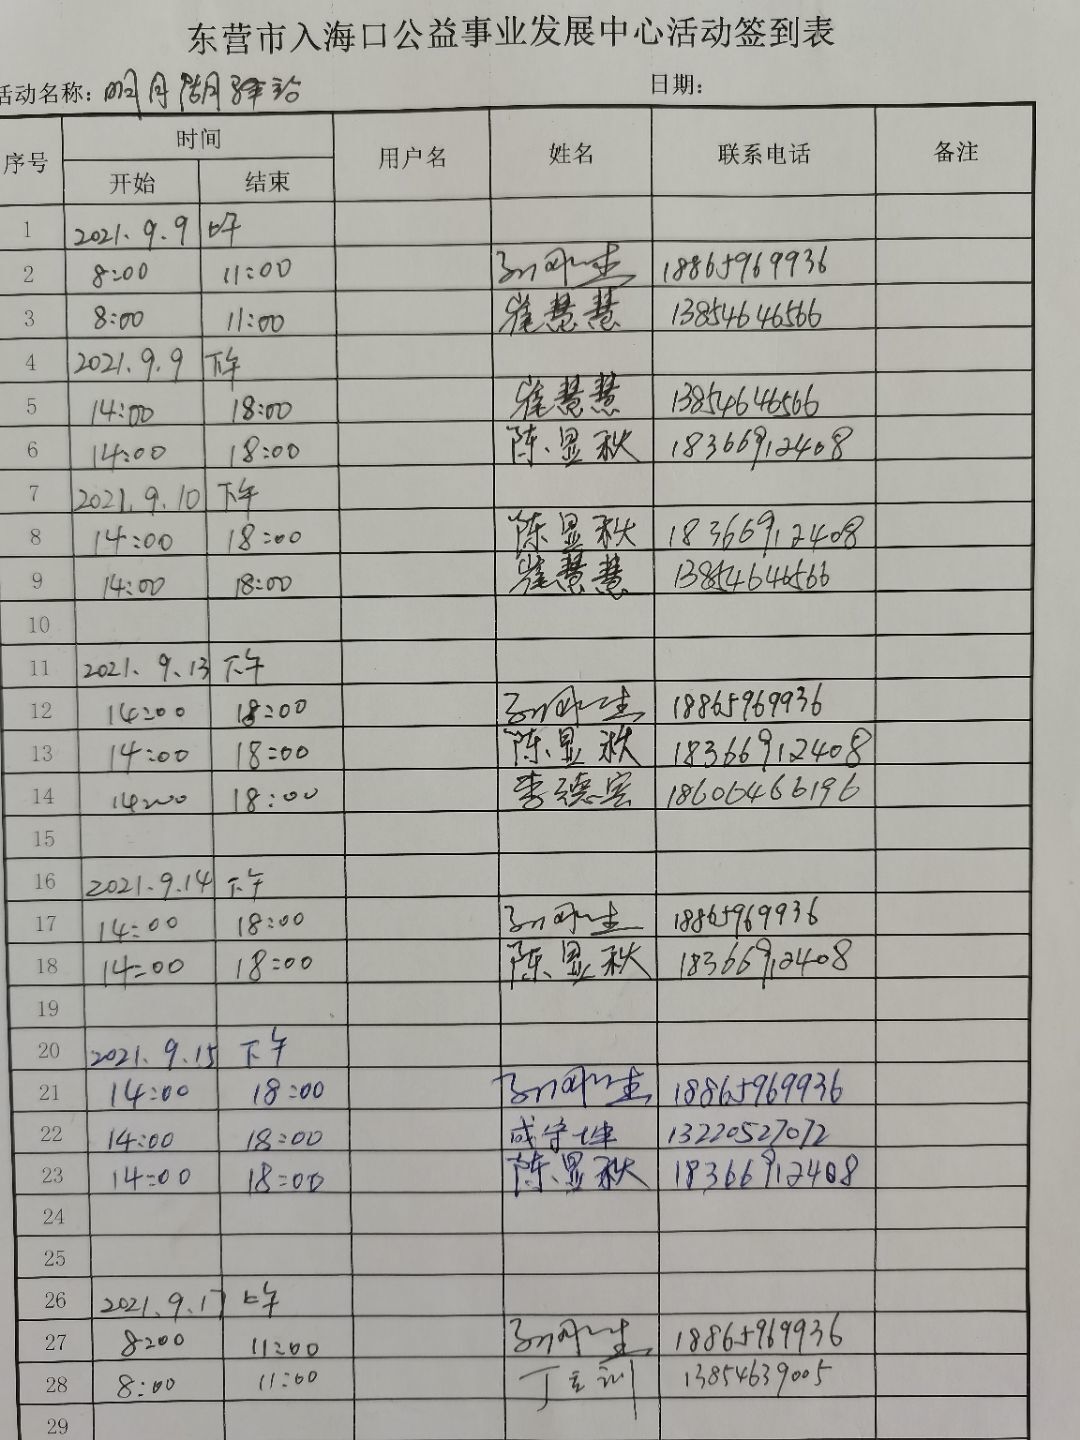 东营市入海口公益事业发展中心活动签到表
活动名称：明月湖驿站 日期：
序号 时间 用户名 姓名 联系电话 备注
开始 结束
1 2021.9.9 上午
2 8:00 11:00 18865969936
3 8:00 11:00 崔慧慧 13854646566
4 2021.9.9 下午
5 14:00 18:00 崔慧慧 13854646566
6 14:00 18:00 陈显秋 18366912408
7 2021.9.10 下午
8 14:00 18:00 陈显秋 18366912408
9 14:00 18:00 崔慧慧 13854646566
10
11 2021.9.13 下午
12 14:00 18:00 18865969936
13 14:00 18:00 陈显秋 18366912408
14 14:00 18:00 李德宝 18606466196
15
16 2021.9.14 下午
17 14:00 18:00 18865969936
18 14:00 18:00 陈显秋 18366912408
19
20 2021.9.15 下午
21 14:00 18:00 18865969936
22 14:00 18:00 13220527072
23 14:00 18:00 陈显秋 18366912408
24
25
26 2021.9.17 上午
27 8:00 11:00 18865969936
28 8:00 11:00 13854639005
29